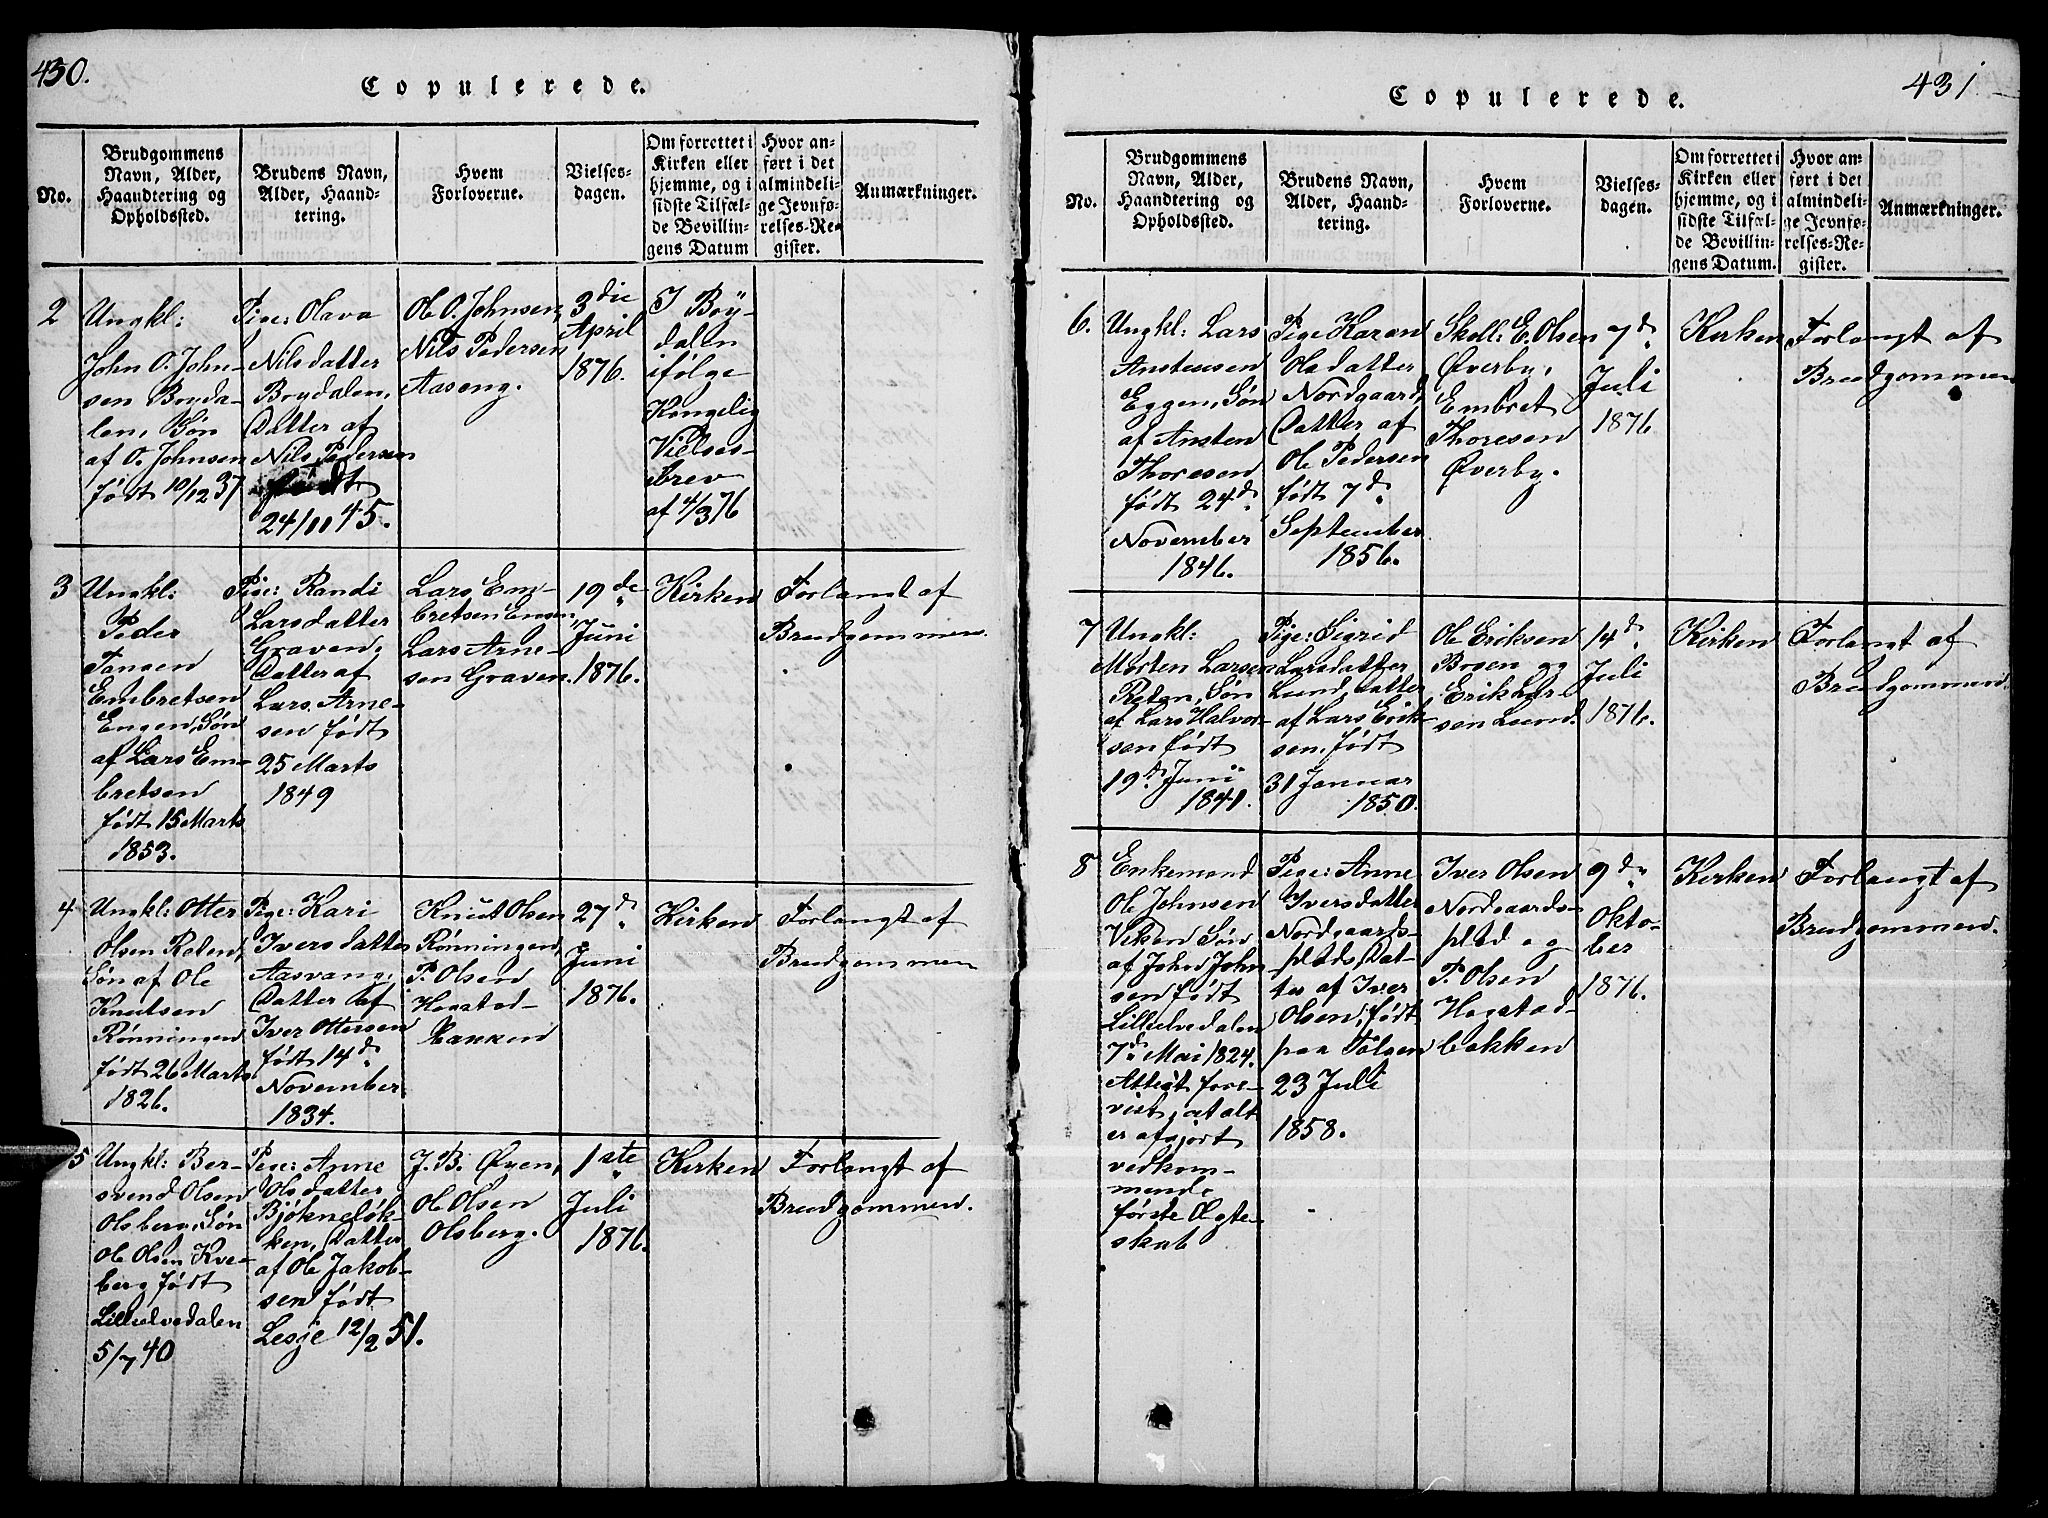 430.
Copulerede.
No.
Brudgommens
Navn, Alder,
Haandtering og
Opholdssted.
Brudens Navn,
Alder, Haand-
tering.
Hvem
Forloverne.
Vielses-
dagen.
Om forrettet i
Kirken eller
hjemme, og i
sidste Tilfæl-
de Bevillin-
gens Datum
Hvor an-
ført i det
almindeli-
ge Jevnfø-
relses-Re-
gister.
Anmærkninger.
2
Ungkl:
John O. John-
sen Boyda-
len, Søn
af O. Johnsen
født 10/12 37
Pige: Olava
Nilsdatter
Boydalen,
Datter af
Nils Pedersen
født
24/11 45.
Ole O. Johnsen,
Nils Pedersen
Aaseng.
3die
April
1876.
I Böy-
dalen
ifølge
Kongelig
Vielses-
brev
af 4/3 76
3
Ungkl:
Peder
Tangen
Embretsen
Engen, Søn
af Lars Em-
bretsen
født 15 Marts
1853.
Pige: Randi
Larsdatter
Graven,
Datter af
Lars Arne-
sen født
25 Marts
1849
Lars Em-
bretsen Engen,
Lars Arne-
sen Graven.
19de
Juni
1876.
Kirken
Forlangt af
Brudgommen.
4
Ungkl: Otter
Olsen Reten,
Søn af Ole
Knutsen
Rønningen
født 26 Marts
1826.
Pige: Kari
Iversdatter
Aasvang,
Datter af
Iver Ottersen
født 14d
November
1834.
Knut Olsen
Rønningen,
P. Olsen
Hogstad-
bakken
27d
Juni
1876.
Kirken
Forlangt af
Brudgommen
5
Ungkl: Ber-
svend Olsen
Olsberg, Søn
Ole Olsen Kve-
berg født
Lilleelvedalen
5/7 40
Pige: Anne
Olsdatter
Bjøkneløk-
ken, Datter
af Ole Jakob-
sen født
Lesje 12/2 51.
J. B. Øyen,
Ole Olsen
Olsberg.
1ste
Juli
1876.
Kirken
Forlangt af
Brudgommen.
431
Copulerede.
No.
Brudgommens
Navn, Alder,
Haandtering og
Opholdssted.
Brudens Navn,
Alder, Haand-
tering.
Hvem
Forloverne.
Vielses-
dagen.
Om forrettet i
Kirken eller
hjemme, og i
sidste Tilfæl-
de Bevillin-
gens Datum.
Hvor an-
ført i det
almindeli-
ge Jevnfø-
relses-Re-
gister.
Anmærkninger.
6.
Ungkl: Lars
Anstensen
Eggen, Søn
af Ansten
Thoresen
født 24d
November
1846.
Pige Karen
Olsdatter
Nordgaard,
Datter af
Ole Pedersen
født 7d
September
1856.
Skoll: E. Olsen
Øverby,
Embret
Thoresen
Øverby.
7d
Juli
1876
Kirken
Forlangt af
Brudgommen
7
Ungkl:
Morten Larsen
Reten, Søn
af Lars Halvor-
sen født
19d Juni
1841.
Pige: Sigrid
Larsdatter
Lund, Datter
af Lars Erik-
sen, født
31 Januar
1850.
Ole Eriksen
Bosen og
Erik Lar-
sen Lund.
14d
Juli
1876.
Kirken
Forlangt af
Brudgommen.
8
Enkemand
Ole Johnsen
Viken Søn
af John John-
sen født
Lilleelvedalen
7d Mai 1824.
Attest fore-
vist, at alt
er afgjort
vedkom-
mende
første Ægte-
skab
Pige: Anne
Iversdatter
Nordgaards-
plads, Dat-
ter af Iver
Olsen, født
paa Tolgen
23 Juli
1858.
Iver Olsen
Nordgaards-
plad og
P. Olsen
Hogstad-
bakken
9d
Okto-
ber
1876.
Kirken
Forlangt af
Brudgommen.